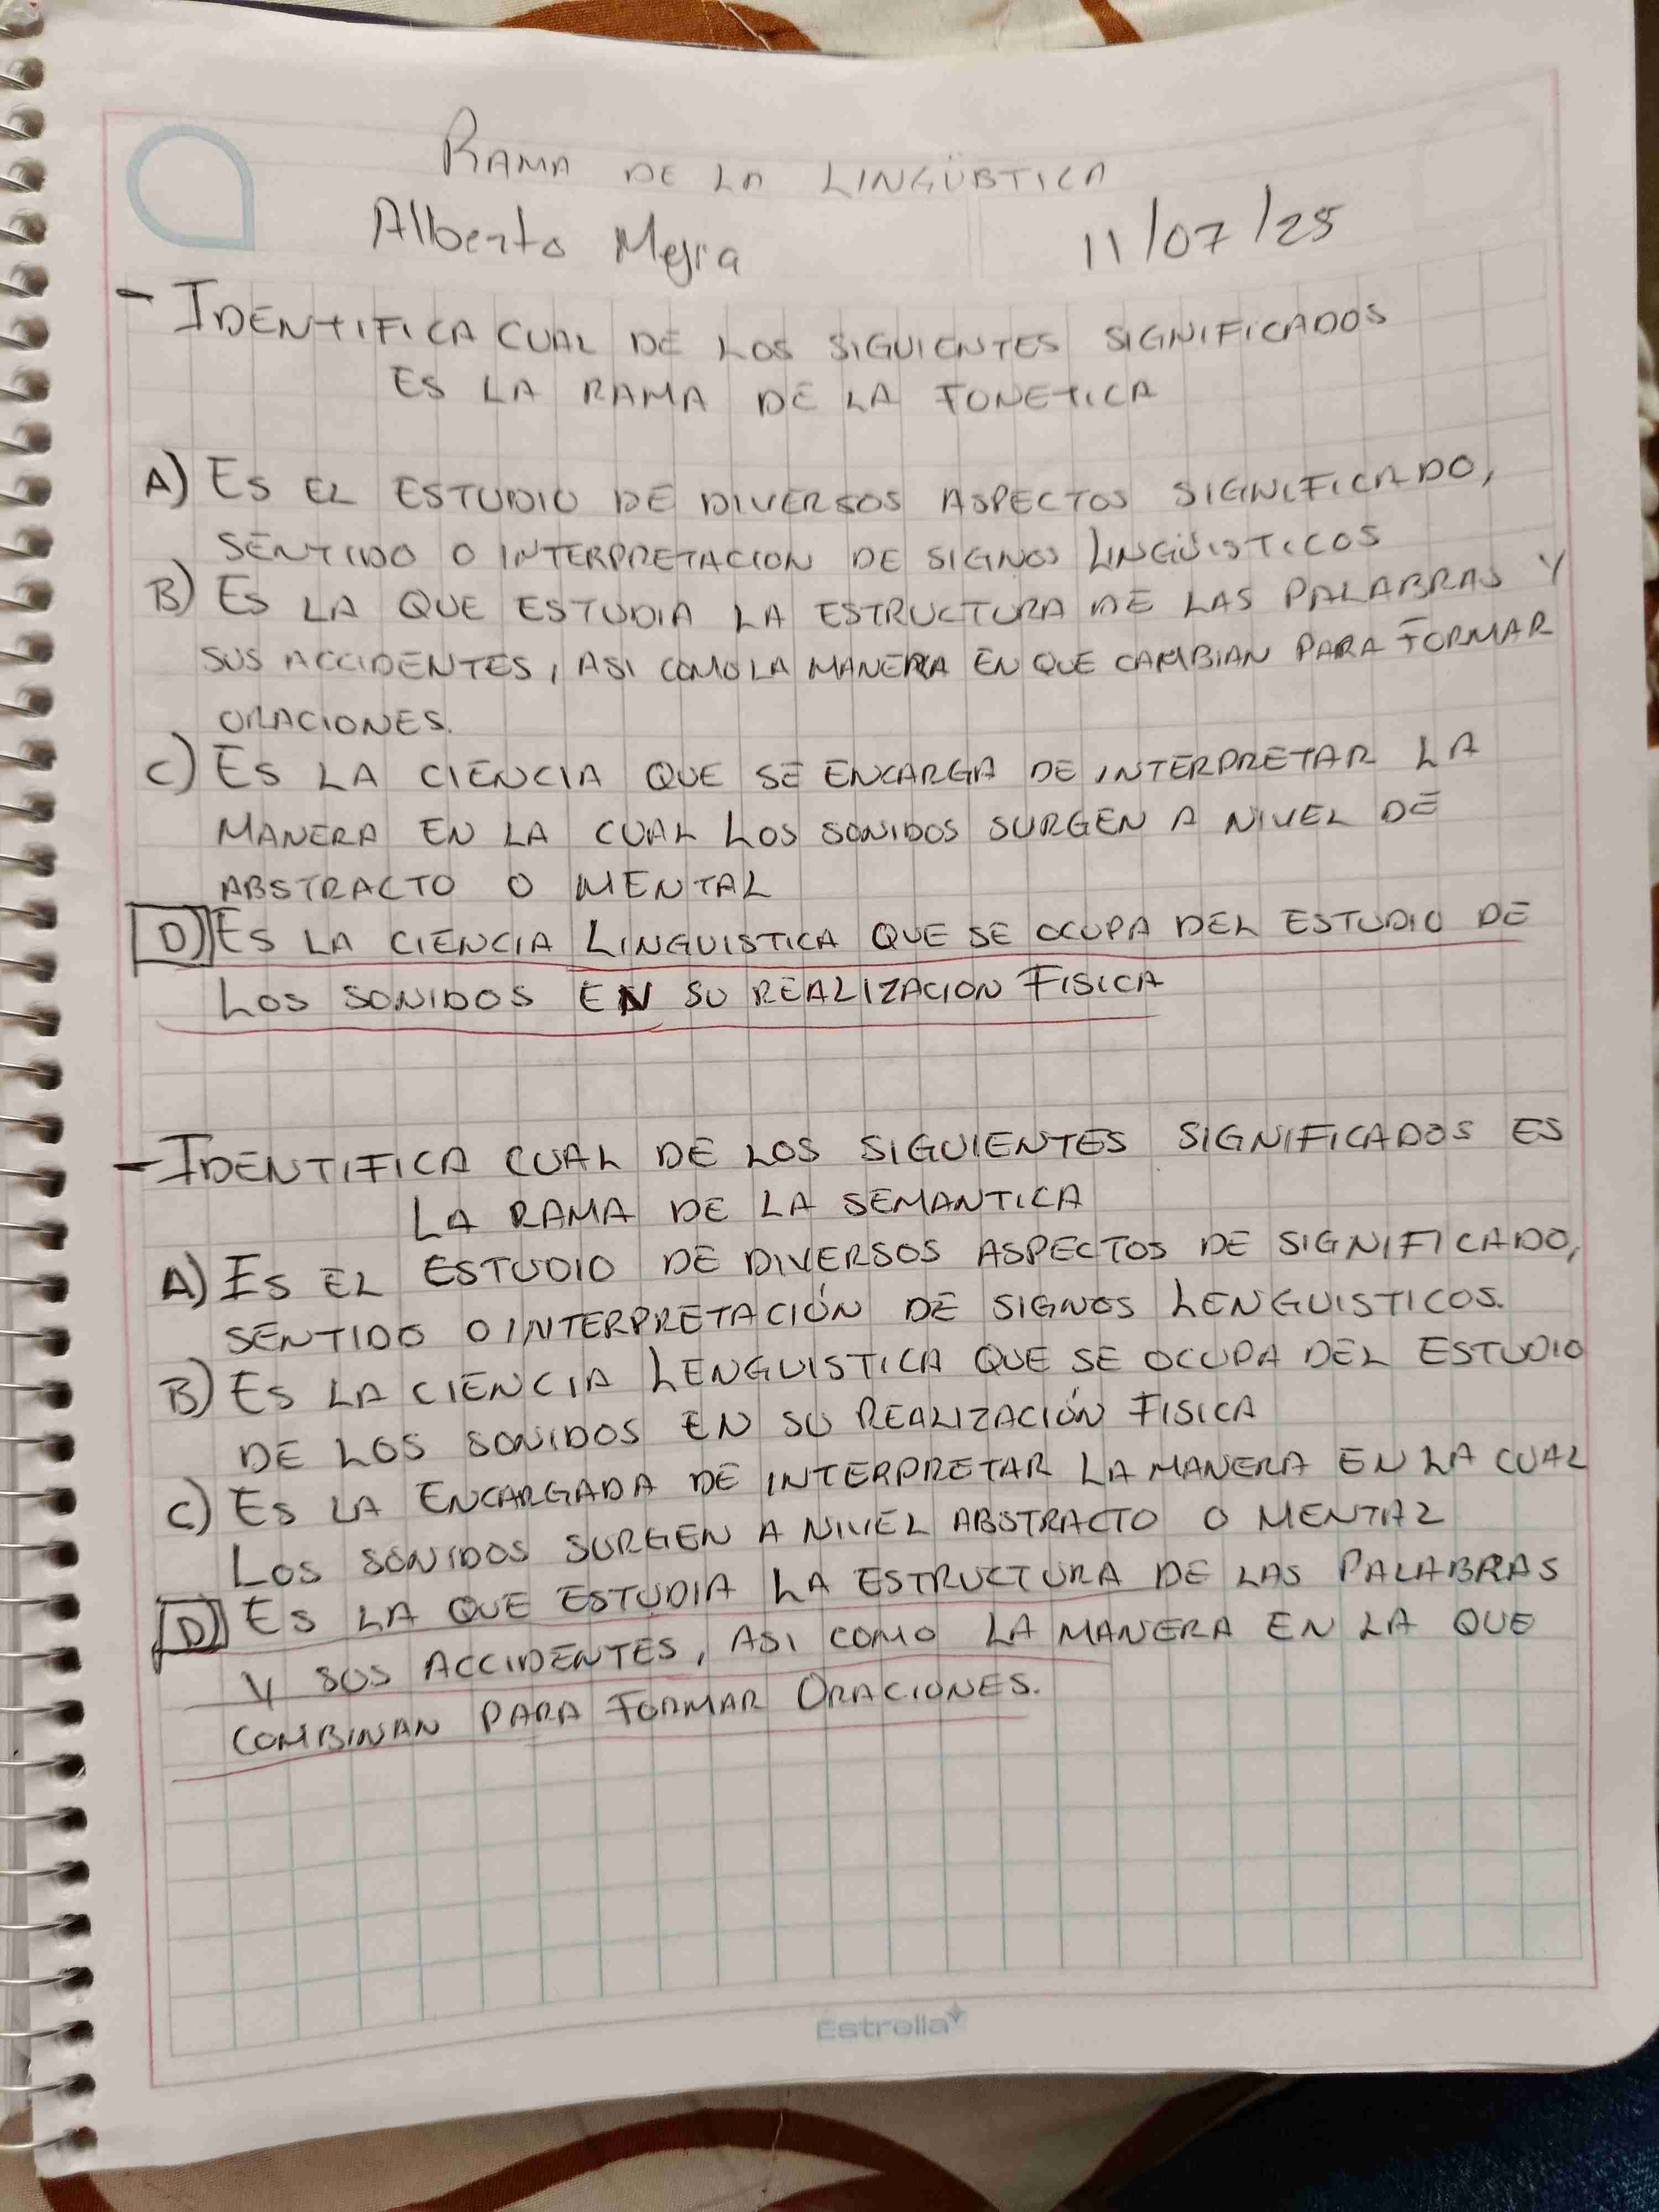 RAMA DE LA LINGÜISTICA
Alberto Mejia 11/07/25
- IDENTIFICA CUAL DE LOS SIGUIENTES SIGNIFICADOS
ES LA RAMA DE LA FONETICA
A) ES EL ESTUDIO DE DIVERSOS ASPECTOS SIGNIFICADO,
SENTIDO O INTERPRETACION DE SIGNOS LINGÜISTICOS
B) ES LA QUE ESTUDIA LA ESTRUCTURA DE LAS PALABRAS Y
SUS ACCIDENTES, ASI COMO LA MANERA EN QUE CAMBIAN PARA FORMAR
ORACIONES.
C) ES LA CIENCIA QUE SE ENCARGA DE INTERPRETAR LA
MANERA EN LA CUAL LOS SONIDOS SURGEN A NIVEL DE
ABSTRACTO O MENTAL
D) ES LA CIENCIA LINGUISTICA QUE SE OCUPA DEL ESTUDIO DE
LOS SONIDOS EN SU REALIZACION FISICA
- IDENTIFICA CUAL DE LOS SIGUIENTES SIGNIFICADOS ES
LA RAMA DE LA SEMANTICA
A) ES EL ESTUDIO DE DIVERSOS ASPECTOS DE SIGNIFICADO,
SENTIDO O INTERPRETACIÓN DE SIGNOS LENGUISTICOS.
B) ES LA CIENCIA LENGUISTICA QUE SE OCUPA DEL ESTUDIO
DE LOS SONIDOS EN SU REALIZACIÓN FISICA
C) ES LA ENCARGADA DE INTERPRETAR LA MANERA EN LA CUAL
LOS SONIDOS SURGEN A NIVEL ABSTRACTO O MENTAL
D) ES LA QUE ESTUDIA LA ESTRUCTURA DE LAS PALABRAS
Y SUS ACCIDENTES, ASI COMO LA MANERA EN LA QUE
COMBINAN PARA FORMAR ORACIONES.
Estrella